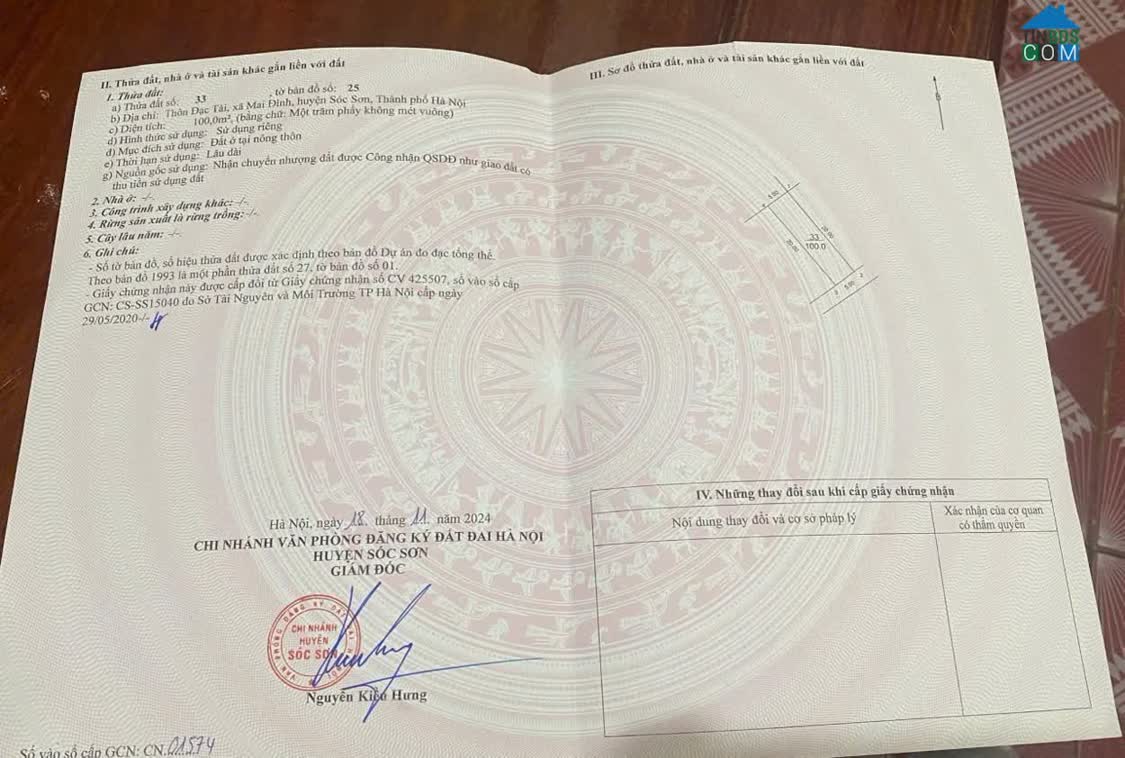 II. Thửa đất, nhà ở và tài sản khác gắn liền với đất
1. Thửa đất:
a) Thửa đất số: 33 , tờ bản đồ số: 25
b) Địa chỉ: Thôn Đạc Tài, xã Mai Đình, huyện Sóc Sơn, Thành phố Hà Nội
c) Diện tích: 100,0m², (bằng chữ: Một trăm phẩy không mét vuông)
d) Hình thức sử dụng: Sử dụng riêng
đ) Mục đích sử dụng: Đất ở tại nông thôn
e) Thời hạn sử dụng: Lâu dài
g) Nguồn gốc sử dụng: Nhận chuyển nhượng đất được Công nhận QSDĐ như giao đất có
thu tiền sử dụng đất
2. Nhà ở: -/-
3. Công trình xây dựng khác: -/-
4. Rừng sản xuất là rừng trồng: -/-
5. Cây lâu năm: -/-
6. Ghi chú:
- Số tờ bản đồ, số hiệu thửa đất được xác định theo bản đồ Dự án đo đạc tổng thể.
Theo bản đồ 1993 là một phần thửa đất số 27, tờ bản đồ số 01.
- Giấy chứng nhận này được cấp đổi từ Giấy chứng nhận số CV 425507, số vào sổ cấp
GCN: CS-SS15040 do Sở Tài Nguyên và Môi Trường TP Hà Nội cấp ngày
29/05/2020-/-
Hà Nội, ngày 18 tháng 11 năm 2024
CHI NHÁNH VĂN PHÒNG ĐĂNG KÝ ĐẤT ĐAI HÀ NỘI
HUYỆN SÓC SƠN
GIÁM ĐỐC
CHI NHÁNH
HUYỆN
SÓC SƠN
Nguyễn Kiều Hưng
Số vào sổ cấp GCN: CN.01574
III. Sơ đồ thửa đất, nhà ở và tài sản khác gắn liền với đất
5.00
20.00
20.00
33
100.0
5.00
IV. Những thay đổi sau khi cấp giấy chứng nhận
Nội dung thay đổi và cơ sở pháp lý
Xác nhận của cơ quan
có thẩm quyền
TINBDS
COM